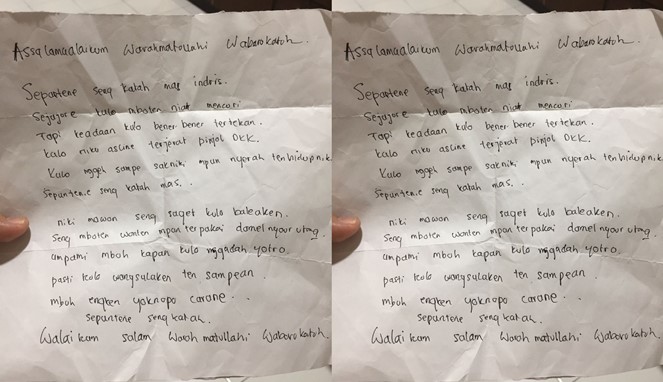 Assalamualaikum Warahmatoullahi Wabarokatoh.
Sepuntene seng katah mas indris.
Sejujore kulo mboten niat mencari
Tapi keadaan kulo bener bener tertekan.
kulo niku asline terjerat pinjol OKK.
Kulo nggeh sampe sakniki mpun nyerah ten hidup niki
Sepuntene seng katah mas..
niki mawon seng saget kulo baleaken.
Seng mboten wonten mpon terpakai damel nyaur utag.
umpami mboh kapan kulo nggadah yotro.
pasti kulo wangsulaken ten sampean
mboh engken yoknopo carane..
sepuntene seng katah.
Walaikum salam Waroh matullahi Wabarokatoh
Assalamualaikum Warahmatoullahi Wabarokatoh.
Sepuntene seng katah mas indris.
Sejujore kulo mboten niat mencari
Tapi keadaan kulo bener bener tertekan.
kulo niku asline terjerat pinjol OKK.
Kulo nggeh sampe sakniki mpun nyerah ten hidup niki
Sepuntene seng katah mas..
niki mawon seng saget kulo baleaken.
Seng mboten wonten mpon terpakai damel nyaur utag.
umpami mboh kapan kulo nggadah yotro.
pasti kulo wangsulaken ten sampean
mboh engken yoknopo carane..
sepuntene seng katah.
Walaikum salam Waroh matullahi Wabarokatoh